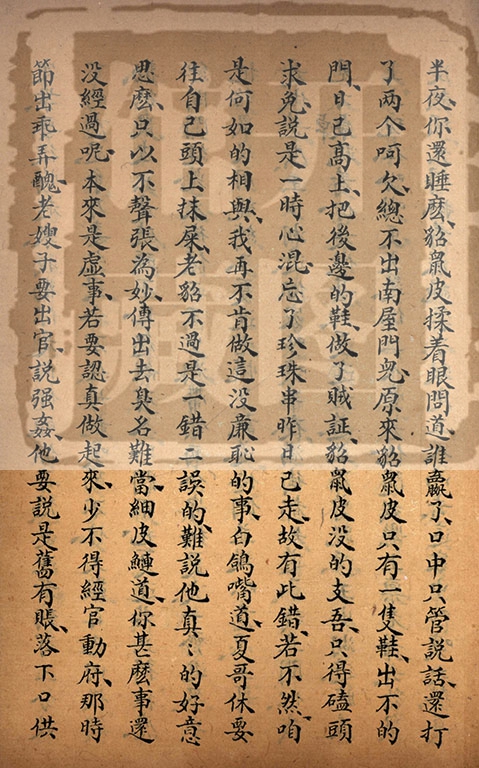 半夜你還睡麽貂鼠皮揉着眼問道誰贏了口中只管說話還打
了两个呵欠總不出南屋門兒原來貂鼠皮只有一隻鞋出不的
門日已高上把後邊的鞋做了賊証貂鼠皮没的支吾只得磕頭
求免說是一時心混忘了珍珠串昨日已走故有此錯若不然咱
是何如的相與我再不肯做這没廉恥的事白鴿嘴道夏哥休要
往自己頭上抹屎老貂不過是一錯二誤的難說他真〻的好意
思麽只以不聲張為妙傳出去臭名難當細皮鰱道你甚麽事還
没經過呢本來是虚事若要認真做起來少不得經官動府那時
節出乖弄醜老嫂子要出官說强姦他要說是舊有賬落下口供